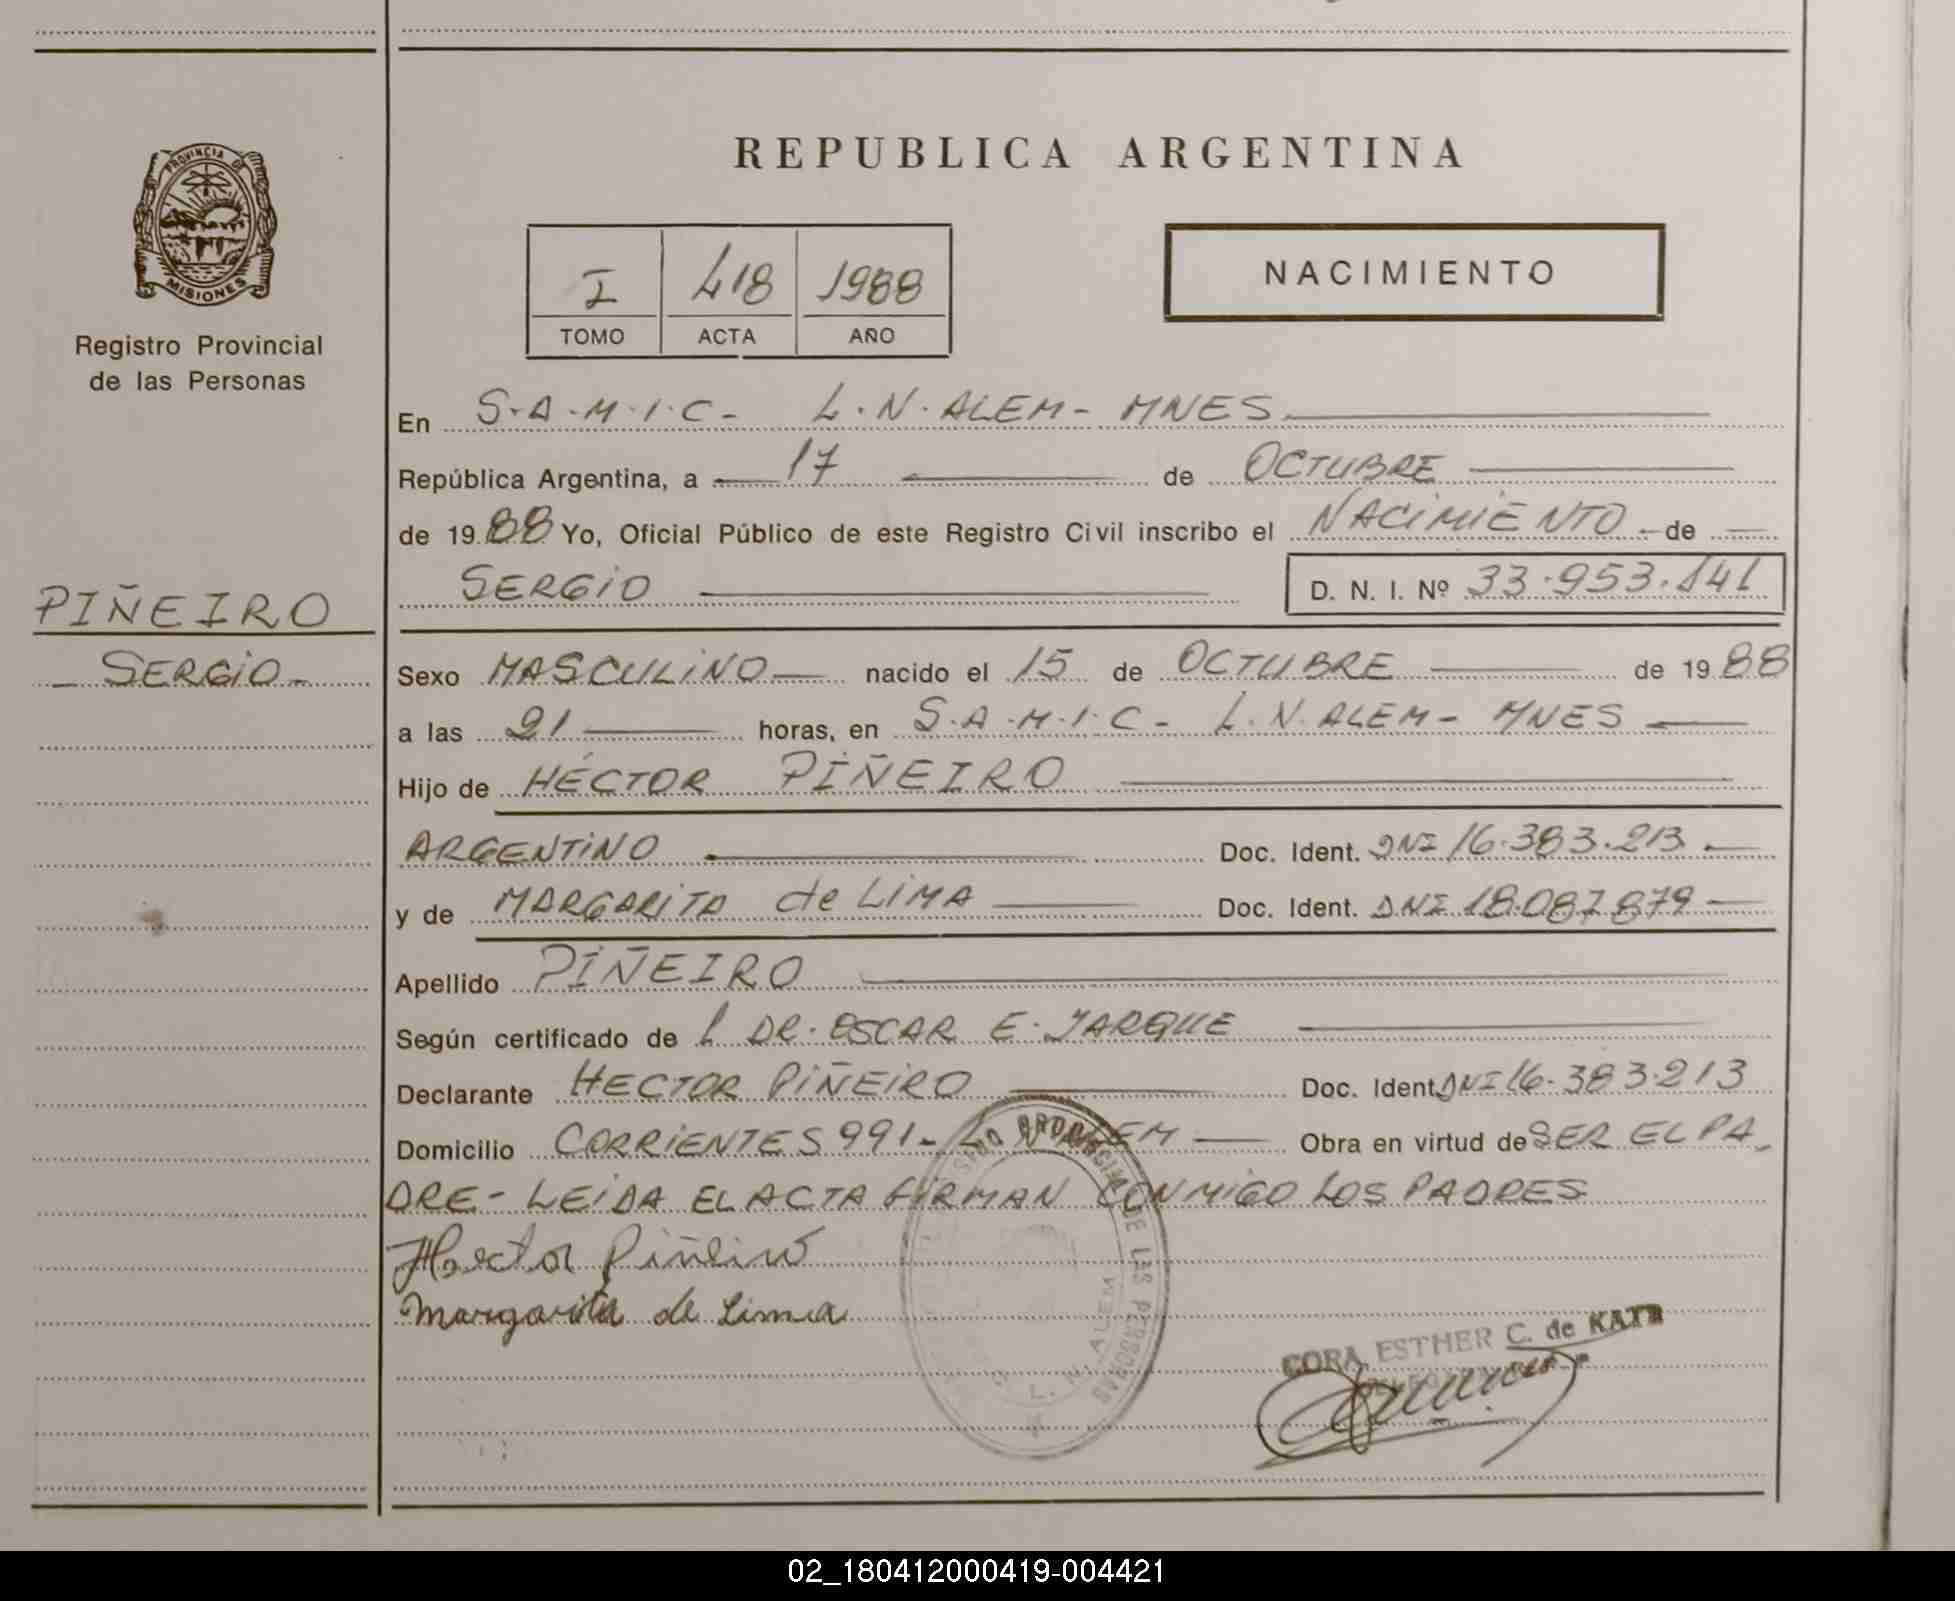 PROVINCIA DE
MISIONES
Registro Provincial
de las Personas
PIÑEIRO
- SERGIO -
REPUBLICA ARGENTINA
I 418 1988
TOMO ACTA AÑO
NACIMIENTO
En S.A.M.I.C- L.N.ALEM- MNES
República Argentina, a 17 de OCTUBRE
de 1988 Yo, Oficial Público de este Registro Civil inscribo el NACIMIENTO - de
SERGIO D. N. I. Nº 33.953.141
Sexo MASCULINO nacido el 15 de OCTUBRE de 1988
a las 21 horas, en S.A.M.I.C- L.N.ALEM- MNES
Hijo de HÉCTOR PIÑEIRO
ARGENTINO Doc. Ident. DNI 16.383.213
y de MARGARITA de LIMA Doc. Ident. DNI 18.087879
Apellido PIÑEIRO
Según certificado de l DR. OSCAR E. JARQUE
Declarante HECTOR PIÑEIRO Doc. Ident. DNI 16.383.213
Domicilio CORRIENTES 991- L.N.ALEM Obra en virtud de SER EL PA
DRE- LEIDA EL ACTA FIRMAN CONMIGO LOS PADRES
Hector Piñeiro
Margarita de Lima
DE LAS PERSONAS
L. N. ALEM
CORA ESTHER C. de KATZ
02_180412000419-004421